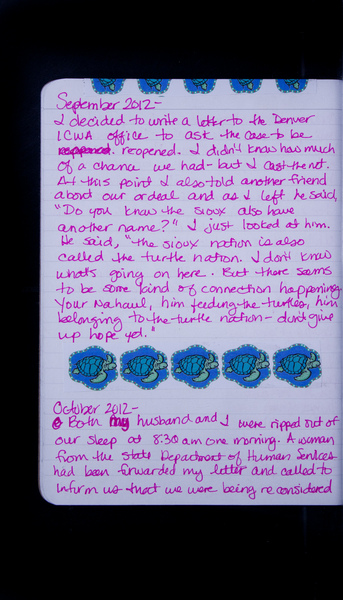 September 2012-
I decided to write a letter to the Denver
ICWA office to ask the case to be
reopened. I didn't know how much
of a chance we had- but I cast the net.
At this point I also told another friend
about our ordeal and as I left he said,
"Do you know the sioux also have
another name?" I just looked at him.
He said, "the sioux nation is also
called the turtle nation. I don't know
what's going on here. But there seems
to be some kind of connection happening
Your Nahaul, him feeding the turtles, him
belonging to the turtle nation- don't give
up hope yet."
October 2012-
Both my husband and I were ripped out of
our sleep at 8:30 am one morning. A woman
from the state Department of Human Services
had been forwarded my letter and called to
inform us that we were being reconsidered